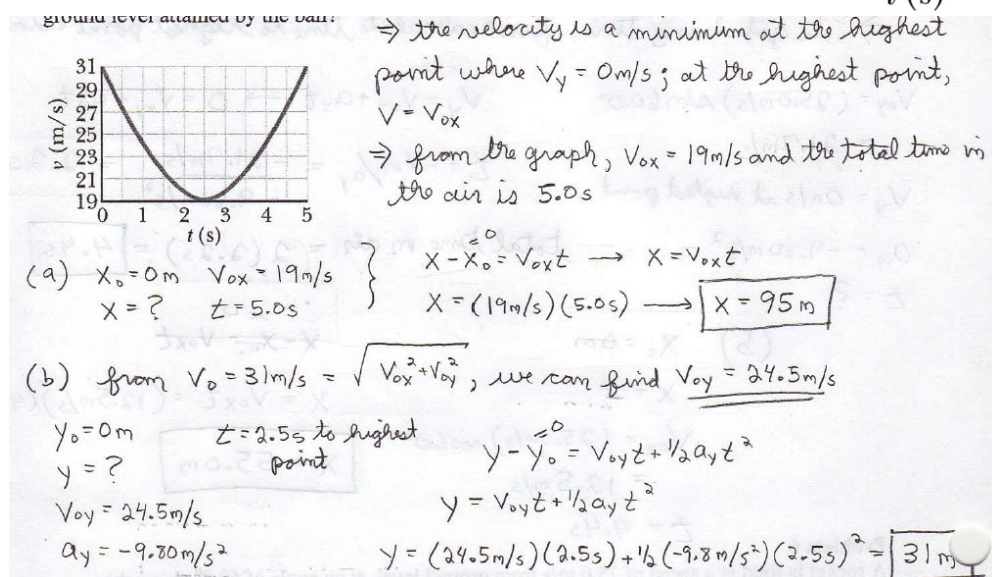 ground level attained by the ball?
t (s)
⇒ the velocity is a minimum at the highest
point where Vy = 0m/s; at the highest point,
V = Vox
⇒ from the graph, Vox = 19m/s and the total time in
the air is 5.0s
31
29
27
25
23
21
19
v (m/s)
0 1 2 3 4 5
t (s)
(a) X₀ = 0m Vox = 19m/s
X = ? t = 5.0s
X - X₀ = Voxt → X = Voxt
= 0
X = (19m/s)(5.0s) → X = 95 m
(b) from V₀ = 31m/s = √Vox² + Voy², we can find Voy = 24.5m/s
y₀ = 0m t = 2.5s to highest
point
y = ?
Voy = 24.5m/s
ay = -9.80m/s²
= 0
y - y₀ = Voyt + ½ayt²
y = Voyt + ½ayt²
y = (24.5m/s)(2.5s) + ½(-9.8m/s²)(2.5s)² = 31 m